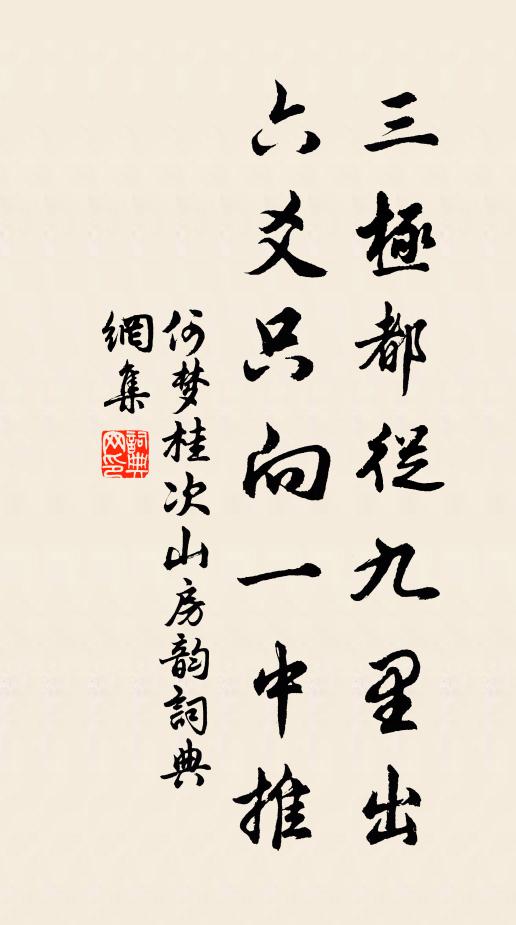 三極都從九里出
六爻只向一中推
何梦桂次山房韵詞典
網集
詞典
网印